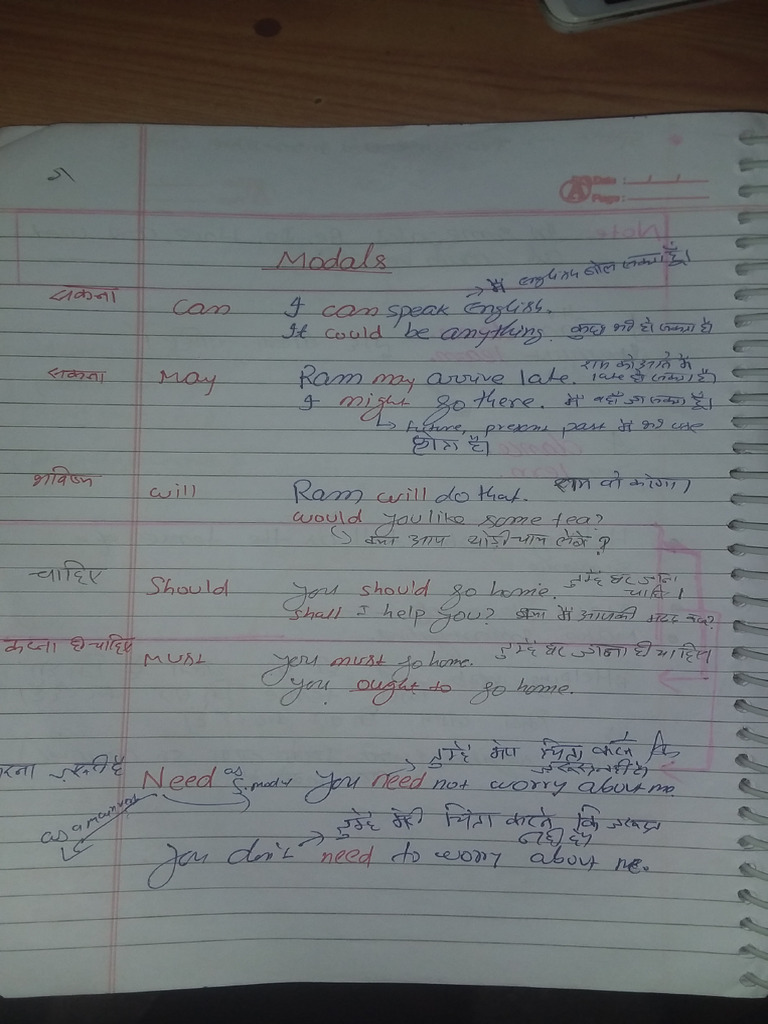 Date :
Page :
Modals
→ मैं english बोल सकता हूँ।
सकना can I can speak English.
It could be anything. कुछ भी हो सकता है
सकना May Ram may arrive late. राम को आने में late हो सकता है।
I might go there. मैं वहाँ जा सकता हूँ।
↳ future, present past में भी use
होता है।
भविष्य will Ram will do that. राम वो करेगा।
would you like some tea?
↳ क्या आप थोड़ी चाय लेंगे ?
चाहिए Should you should go home. तुम्हें घर जाना चाहिए।
shall I help you? क्या मैं आपकी मदद करूँ?
करना ही चाहिए MUST you must go home. तुम्हें घर जाना ही चाहिए
you ought to go home.
→ तुम्हें मेरी चिंता करने कि
जरूरत नहीं है
करना जरूरी है Need as you need not worry about me.
→ तुम्हें मेरी चिंता करने कि जरूरत
नहीं है
as a main verb
you don't need to worry about me.